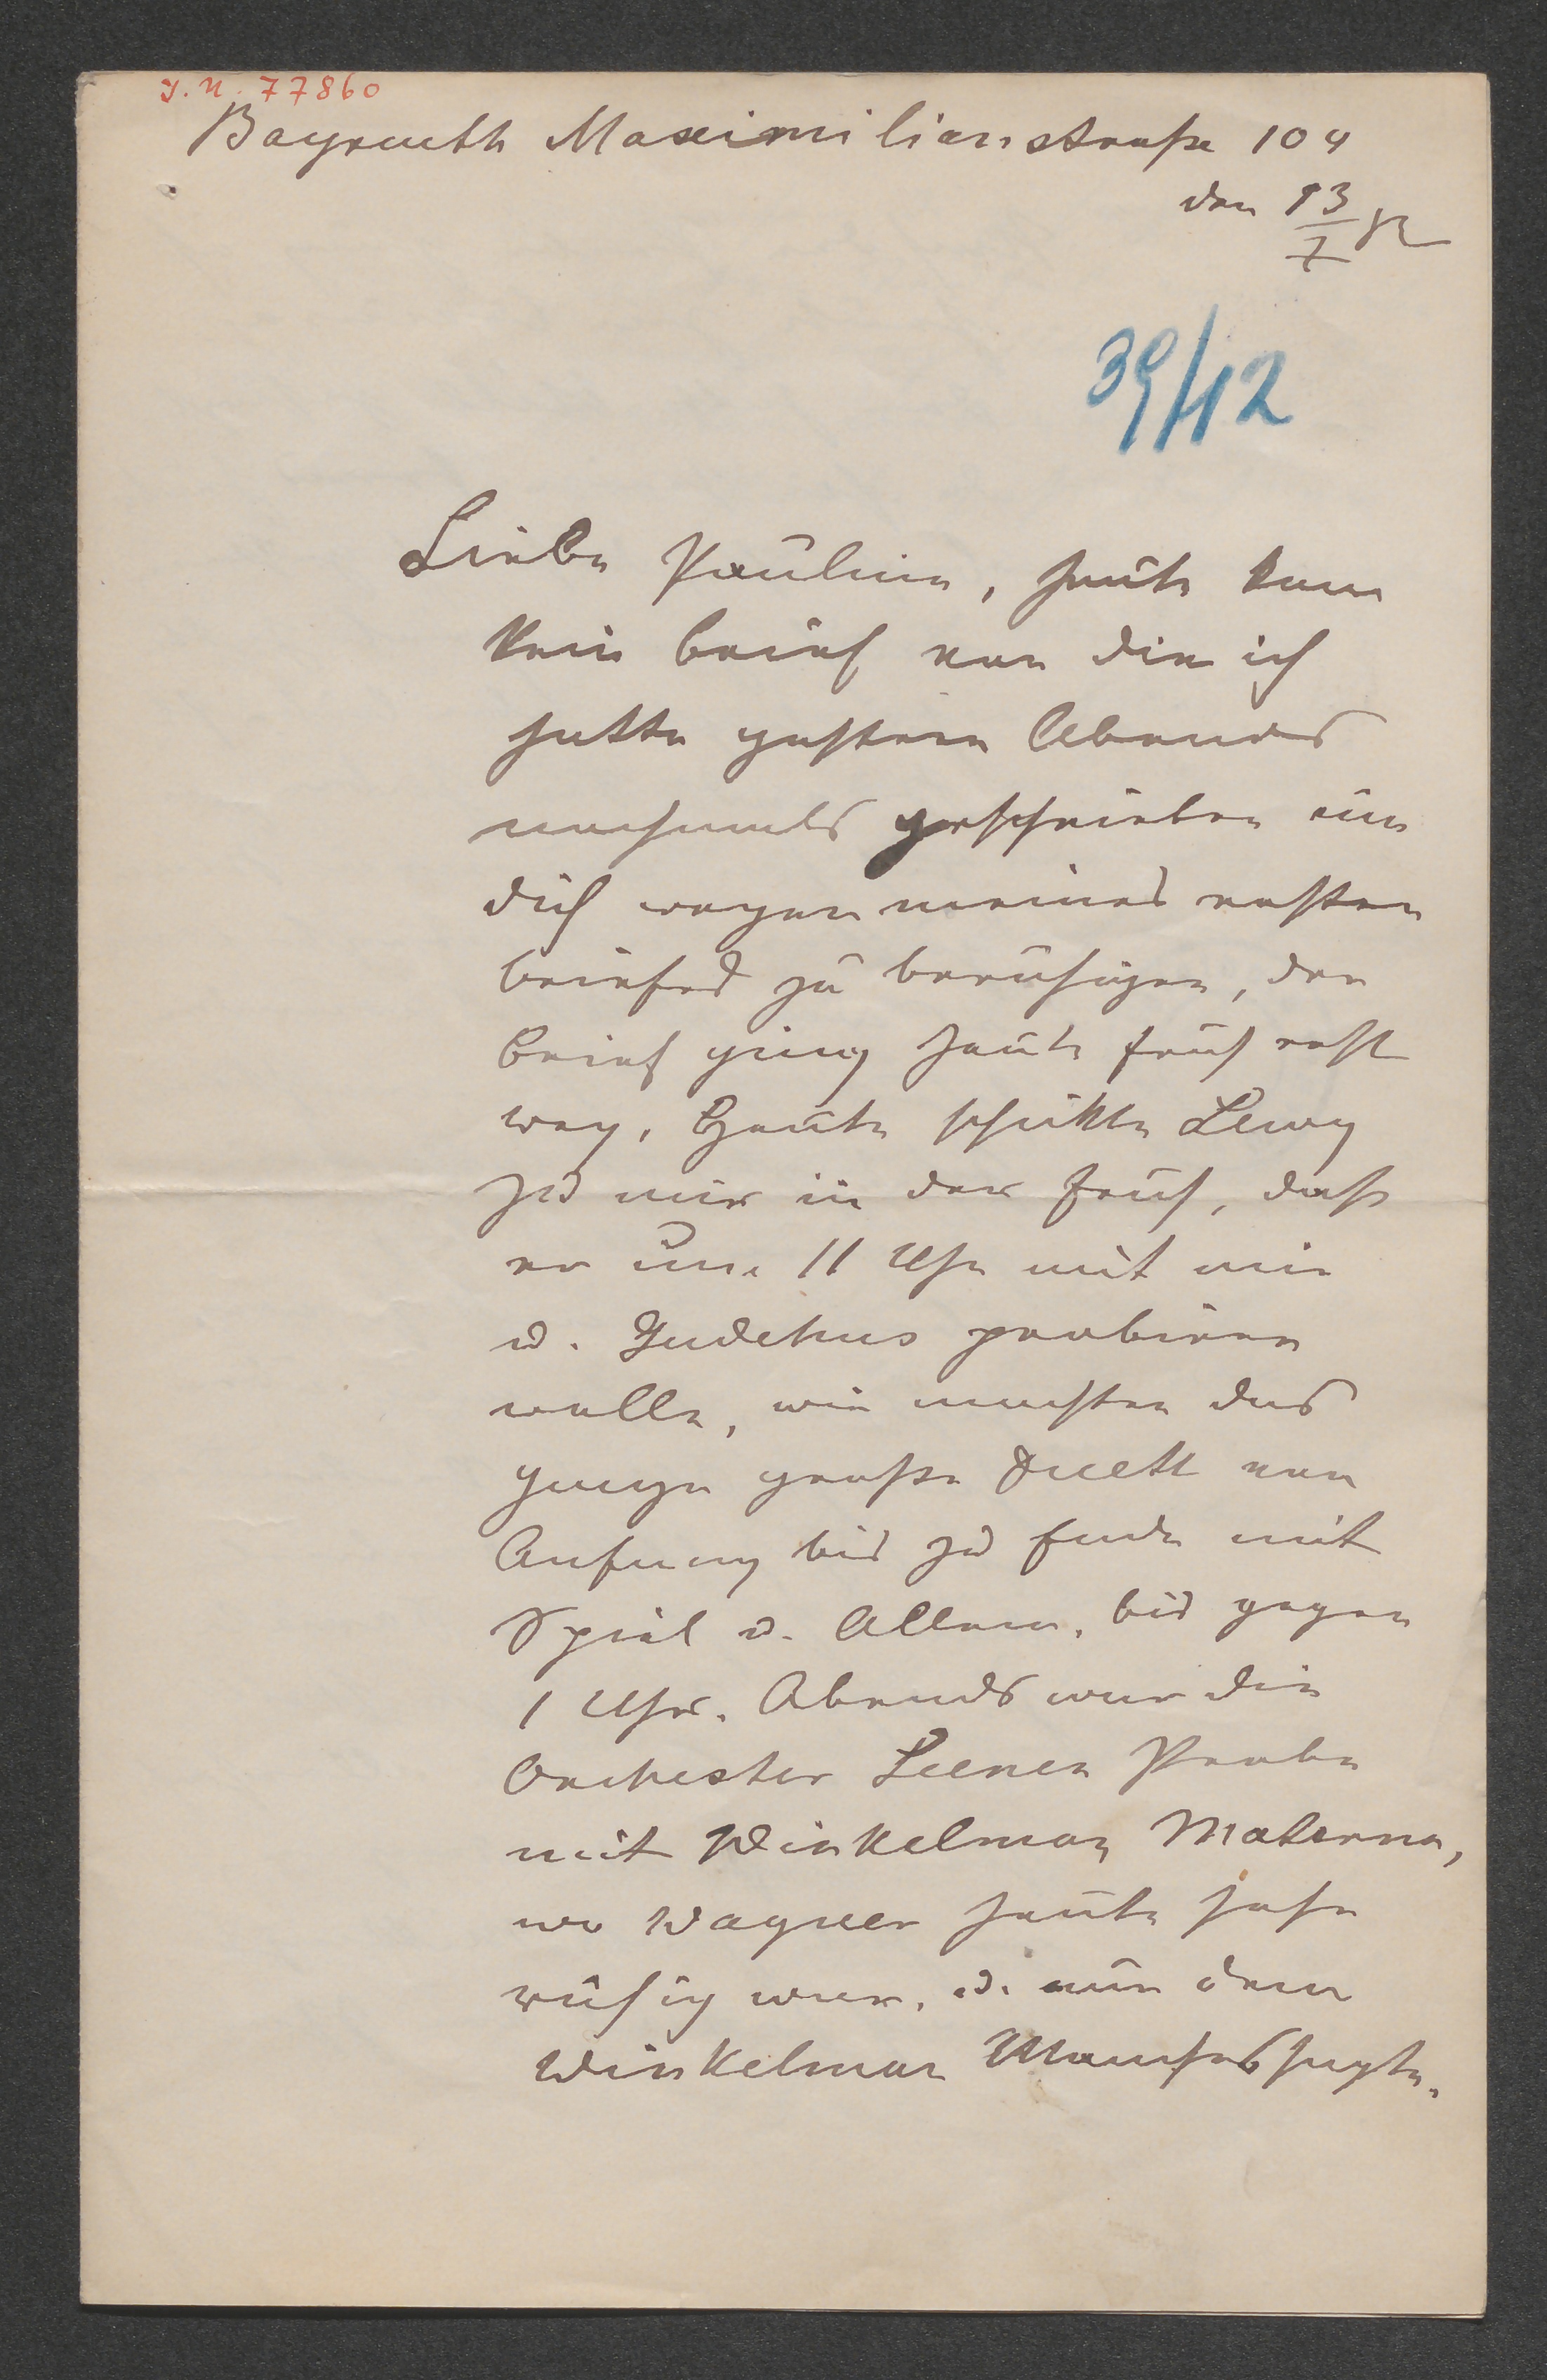 J. N. 77860
Bayreuth Maximilianstraße 104
den 13/7 82
39/12
Liebe Pauline, heute kam
kein brief von dir ich
hatte gestern Abends
nochmals geschrieben um
dich wegen meines ersten
briefes zu beruhigen, der
brief ging heute früh erst
weg, Heute schikte Lewy
zu mir in der früh, daß
er um 11 Uhr mit mir
u. Gudehus probiren
wolle, wir machten das
ganze große Duett von
Anfang bis zu Ende mit
Spiel u. Allem, bis gegen
1 Uhr. Abends war die
Orchester Scenen Probe
mit Winkelman, Materna,
wo Wagner heute sehr
ruhig war, u. nur dem
Winkelman Manches sagte.